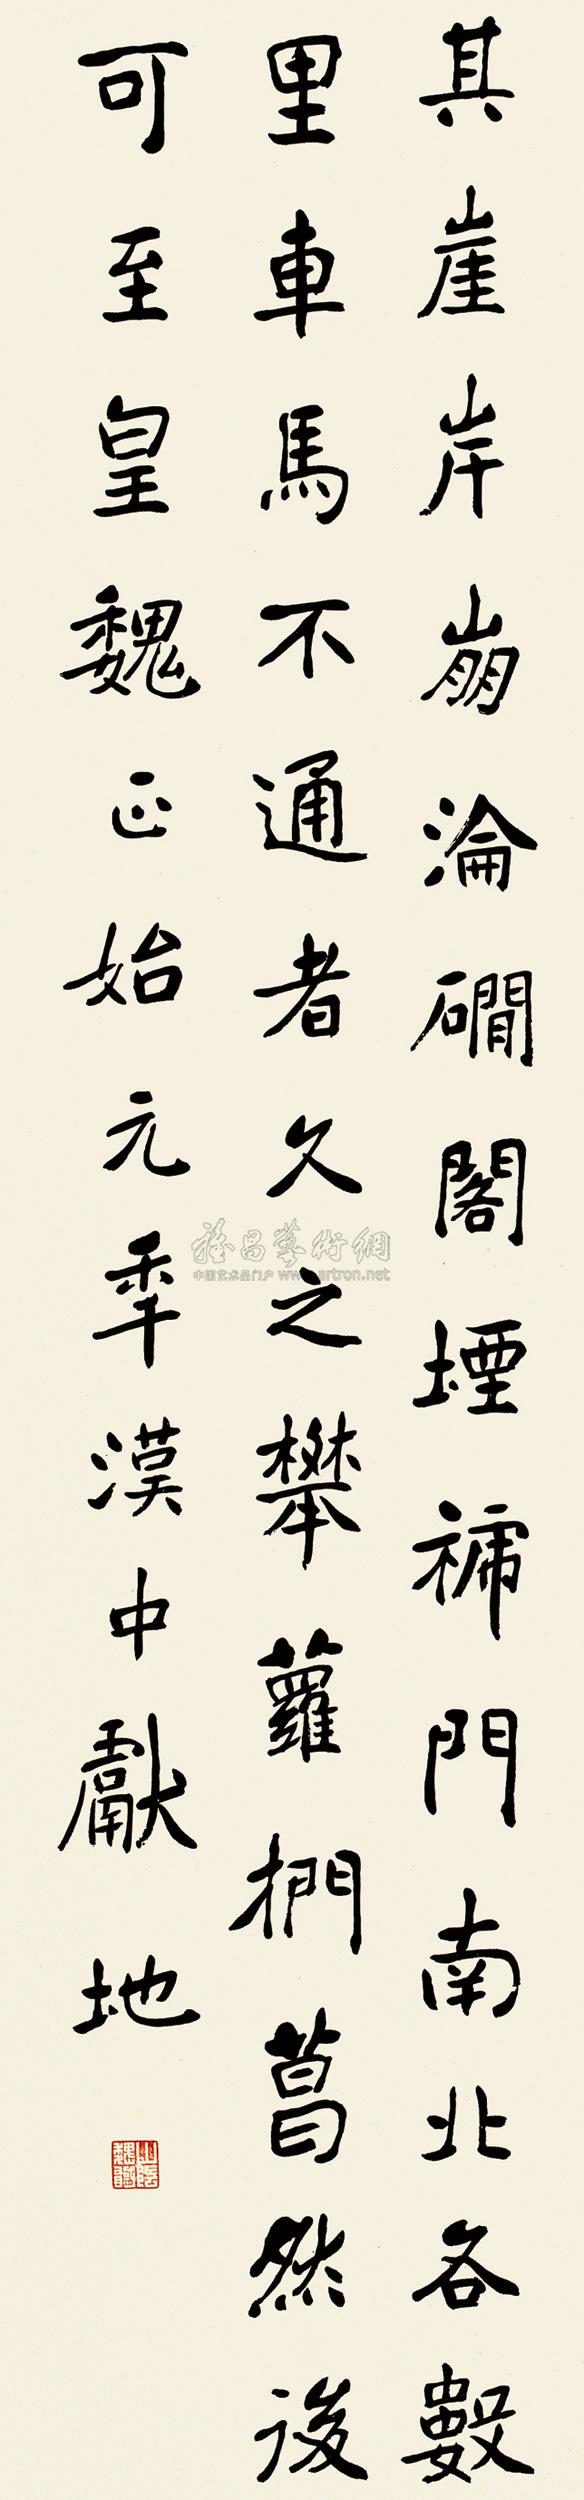 其崖岸崩淪磵閣堙褫門南北各數
里車馬不通者久之攀蘿捫葛然後
可至皇魏正始元年漢中獻地
雅昌藝術網
中国艺术品门户 www.artron.net